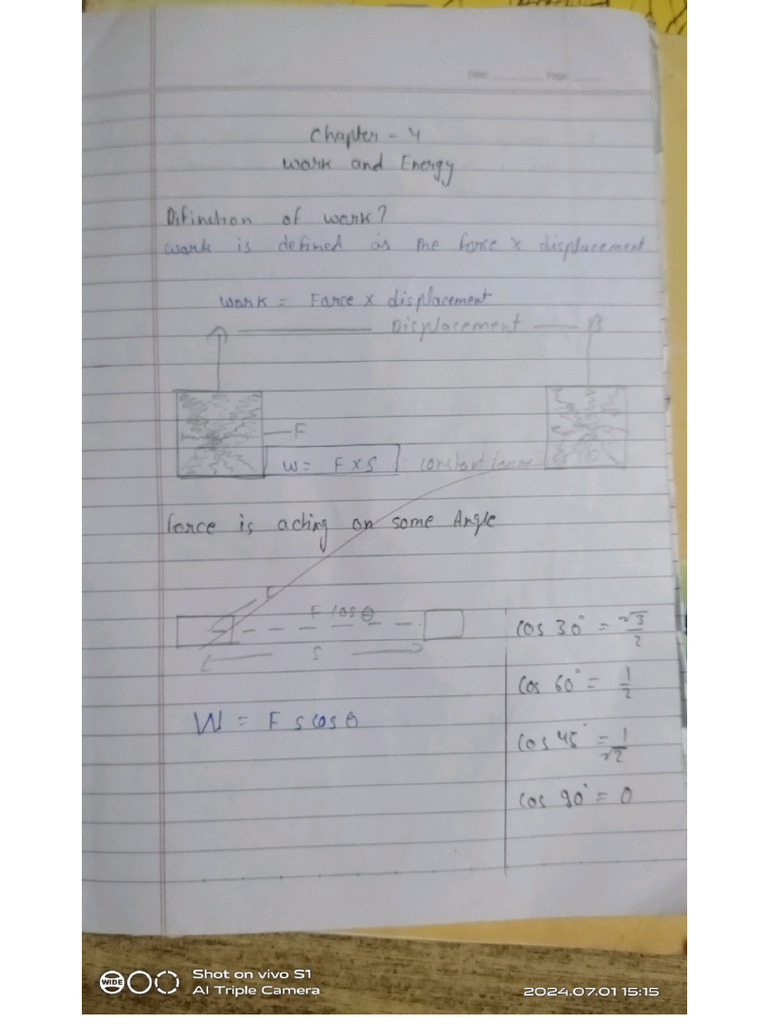 Date Page
Chapter - 4
Work and Energy
Difinction of work?
work is defined as the force x displacement
work = Farce x displacement
Displacement B
F
W = F x S constant
force is acting on some Angle
F
F cos θ
S
cos 30° = √3/2
cos 60° = 1/2
W = F s cos θ
cos 45° = 1/√2
cos 90° = 0
WIDE
Shot on vivo S1
AI Triple Camera
2024.07.01 15:15